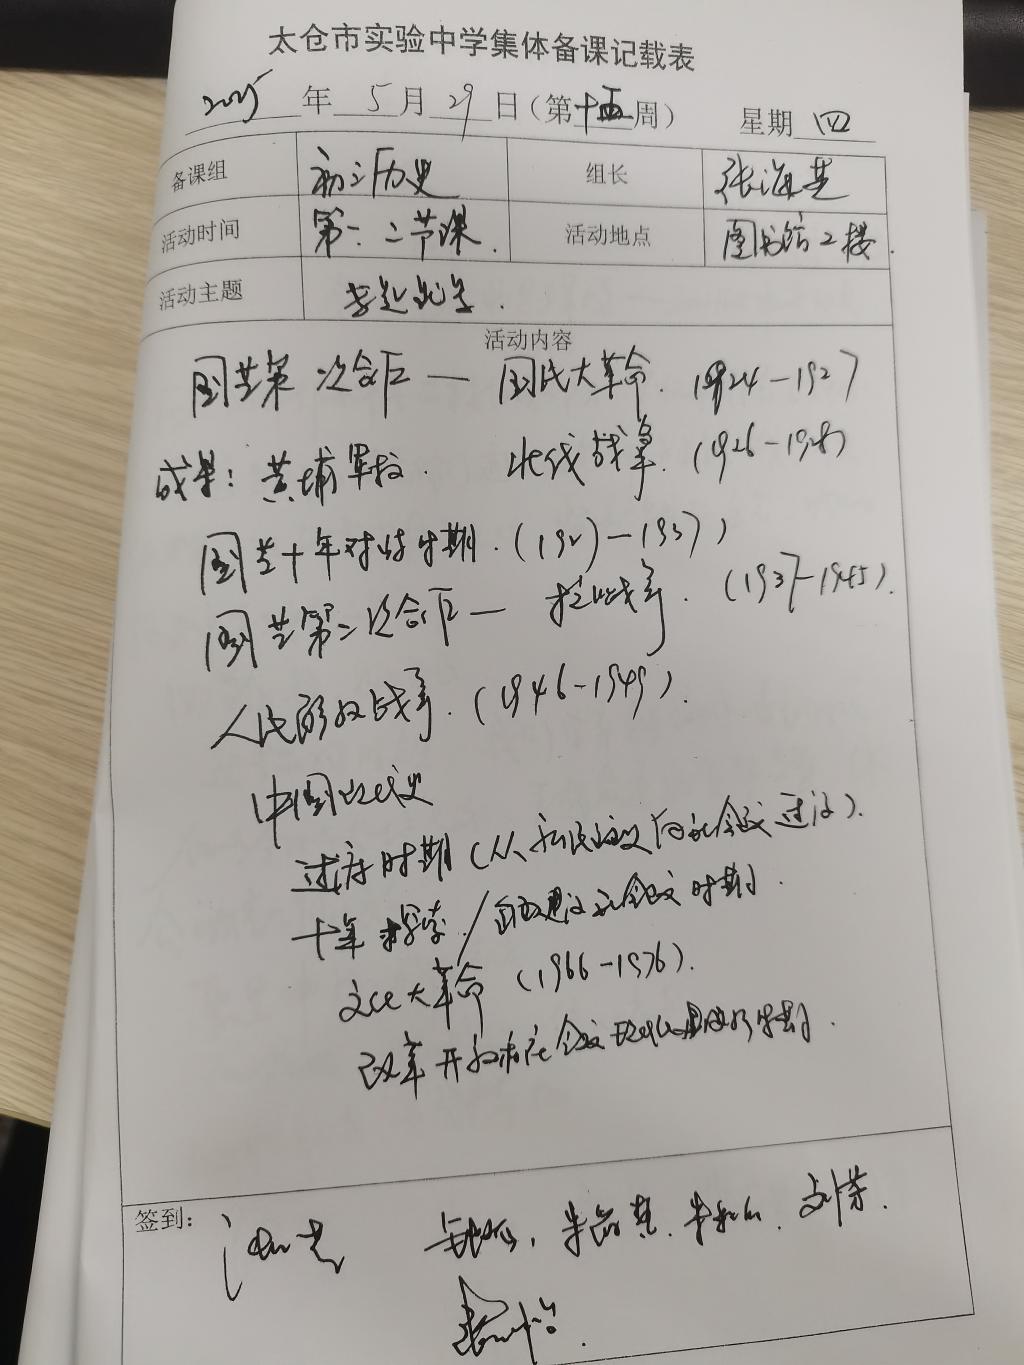 太仓市实验中学集体备课记载表
2025 年 5 月 29 日（第十五周） 星期 四
备课组 初三历史 组长
活动时间 第一、二节课. 活动地点 图书馆2楼.
活动主题
活动内容
国共第一次合作— 国民大革命. (1924-1927
成果：黄埔军校. 北伐战争. (1926-1928)
国共十年对峙时期. (1927-1937)
国共第二次合作— 抗日战争. (1937-1945).
人民解放战争. (1946-1949).
中国现代史
过渡时期 (从新民主主义向社会主义过渡).
十年探索/全面建设社会主义时期.
文化大革命 (1966-1976).
改革开放和社会主义现代化建设新时期.
签到：